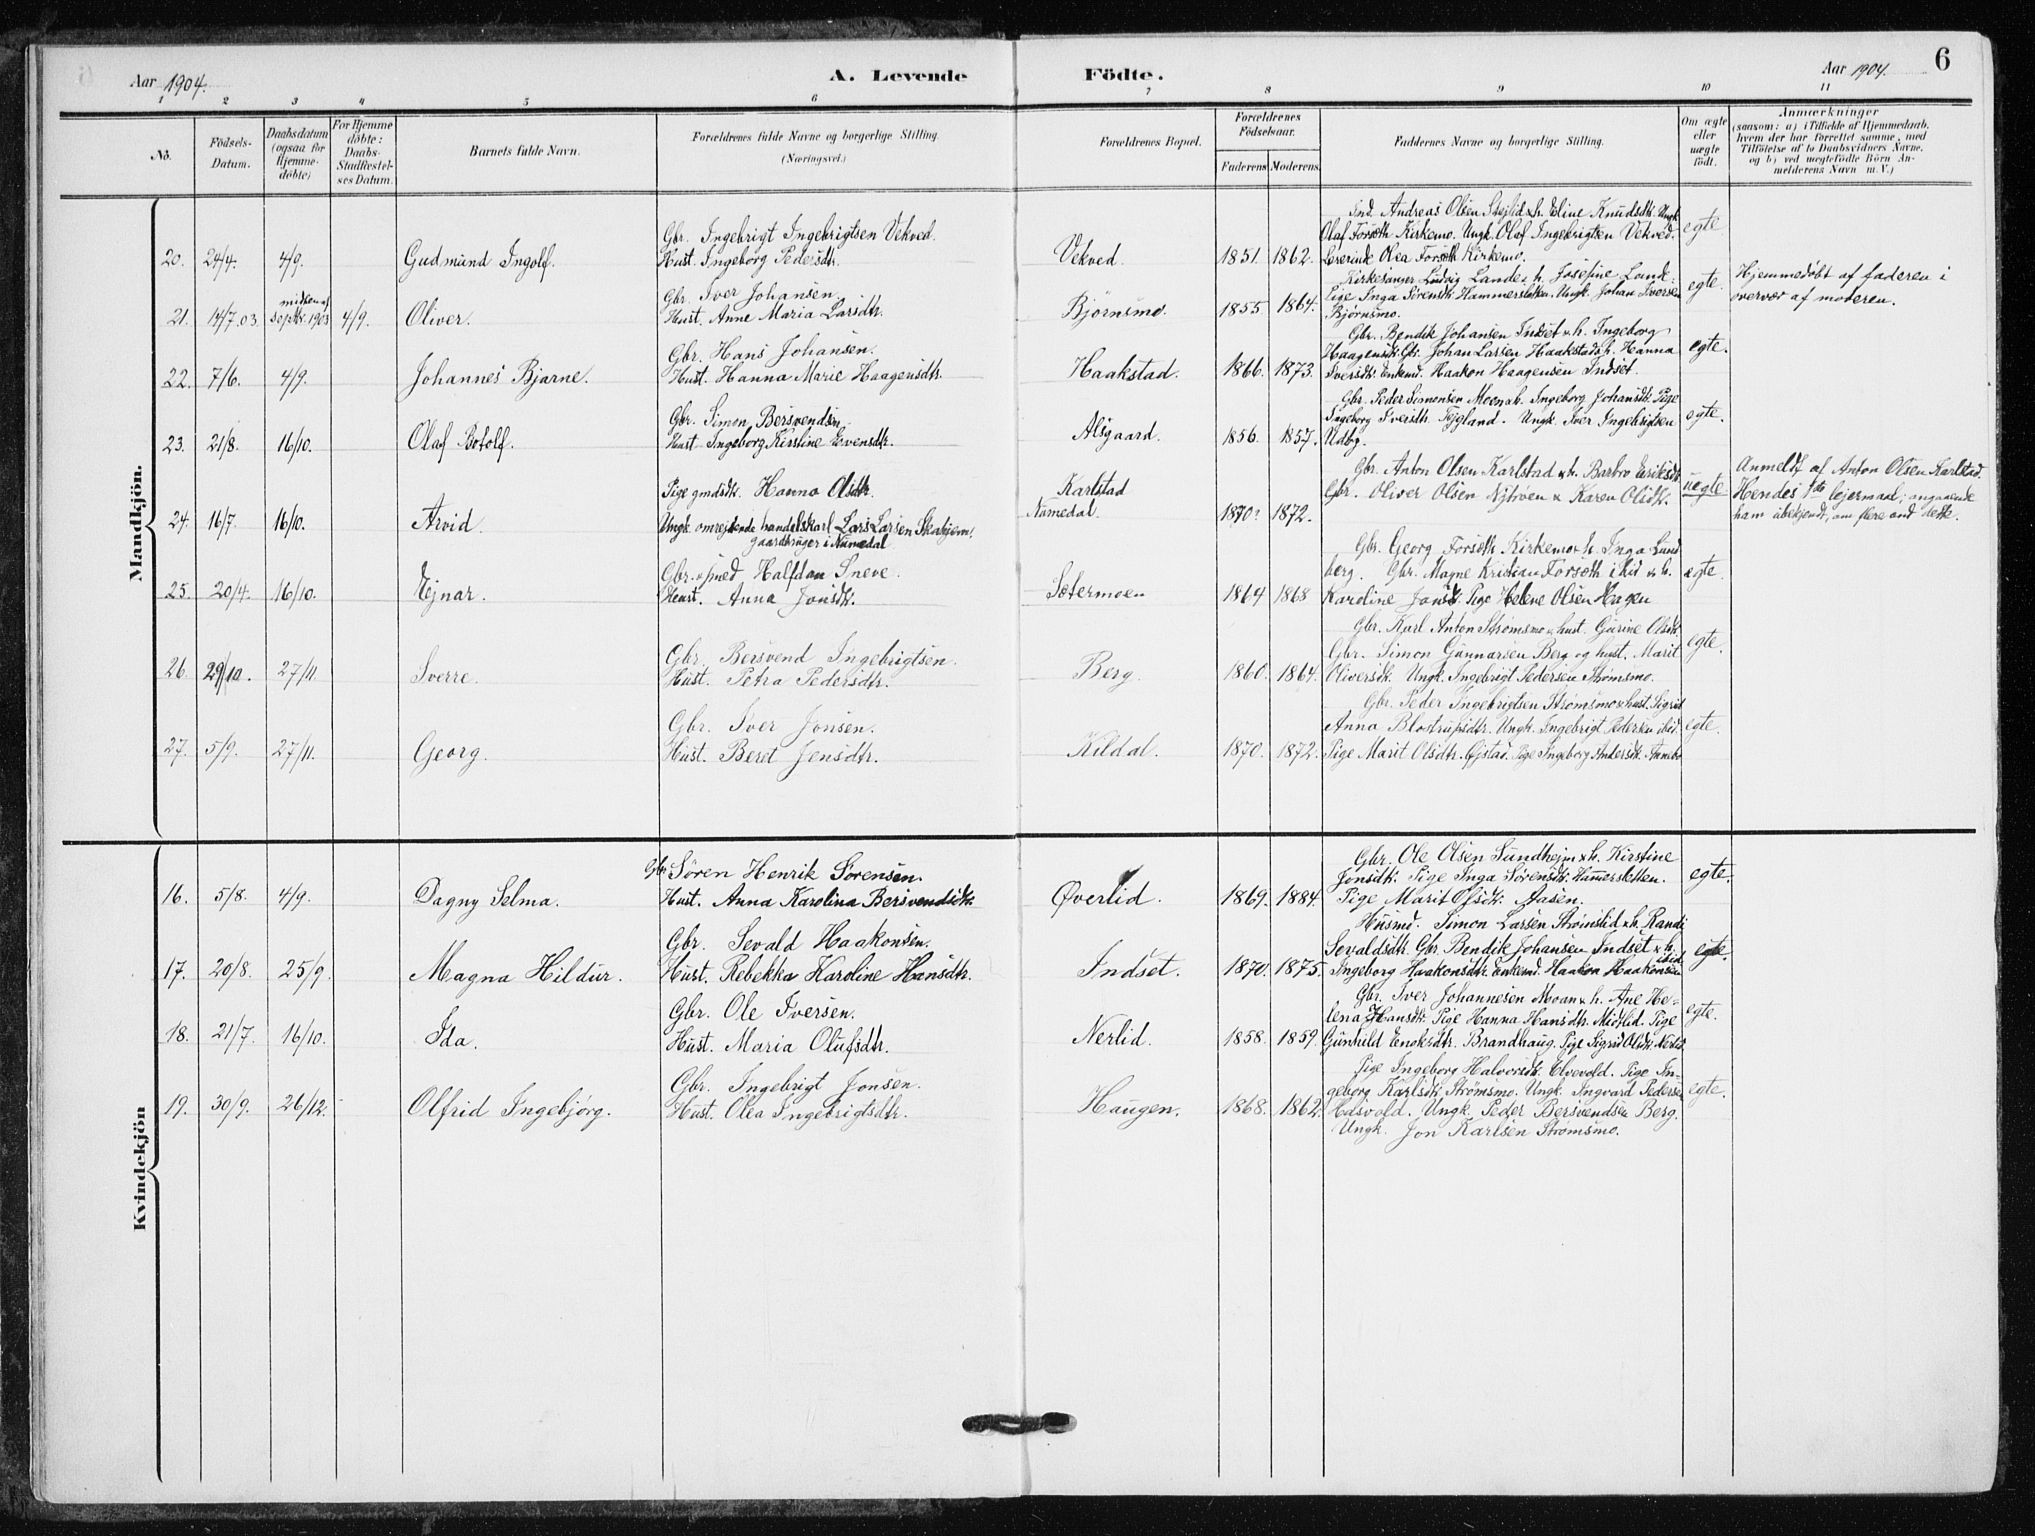 Aar 1904. A. Levende Födte. Aar 1904. 6
1 2 3 4 5 6 7 8 9 10 11
No. Födsels-Datum. Daabsdatum (ogsaa for Hjemme-döbte) For Hjemme döbte: Daabs-Stadfæstel-ses Datum. Barnets fulde Navn. Forældrenes fulde Navne og borgerlige Stilling. (Næringsvei.) Forældrenes Bopæl. Forældrenes Födselsaar. Faderens Moderens. Faddernes Navne og borgerlige Stilling. Om ægte eller uægte födt. Anmærkninger
(saasom: a) i Tilfælde af Hjemmedaab,
hvem der har forrettet samme, med
Tilföielse af to Daabsvidners Navne,
og b) ved uegtefödte Börn An-
melderens Navn m. V.)
Mandkjön.
Ind. Andreas Olsen Stejlid & h. Eline Knudsdtr. Ungk.
Gbr. Ingebrigt Ingebrigtsen Vekved. Olaf Forseth Kirkemo. Ungk. Olaf Ingebrigtsen Vekved. egte
20. 24/4. 4/9. Gudmund Ingolf. Hust. Ingeborg Pedersdtr. Vekved. 1851. 1862. Lærerinde Olea Forseth Kirkemo.
Kirkesanger Ludvig Lunde & h. Josefine Lunde. Hjemmedøbt af faderen i
Gbr. Iver Johansen. Pige Inga Sørensdtr. Hammersletten. Ungk. Johan Iversen egte. overvær af moderen.
21. 14/7.03 midten af Septbr. 1903 4/9. Oliver. Hust. Anne Maria Larsdtr. Bjørnsmo. 1855. 1864. Bjørnsmo.
Gbr. Bendik Johansen Indset & h. Ingeborg
Gbr. Hans Johansen. Haagensdtr. Gbr. Johan Larsen Haakstad & h. Hanna egte.
22. 7/6. 4/9. Johannes Bjarne. Hust. Hanna Marie Haagensdtr. Haakstad. 1866. 1873. Iversdtr. Enkemd. Haakon Haagensen Indset.
Gbr. Peder Simonsen Moen & h. Ingeborg Johansdtr. Pige
Gbr. Simon Bersvendsen Ingeborg Iversdtr. Tejgland. Ungk. Iver Ingebrigtsen egte.
23. 21/8. 16/10. Olaf Botolf. Hust. Ingeborg Kirstine Evensdtr. Alsgaard. 1856. 1857. Udbg.
Gbr. Anton Olsen Karlstad & h. Barbro Eriksdtr. Anmeldt af Anton Olsen Karlstad.
Pige gmdsdtr. Hanna Olsdtr. Karlstad Gbr. Oliver Olsen Nytrøen & Karen Olsdtr. uegte Hendes 1ste lejermaal; angaaende
24. 16/7. 16/10. Arvid. Ungk. omrejsende handelskarl Lars Larsen Skahjem, Numedal. 1870? 1872. ham ubekjendt, om flere end dette.
gaardbruger i Numedal
Gbr. Georg Forseth Kirkemo & h. Inga Lund
Gbr. & smed Halfdan Sneve. berg. Gbr. Magne Kristian Forseth ibid & h. egte.
25. 20/4. 16/10. Ejnar. Hust. Anna Jonsdtr. Sætermoen 1864 1868 Karoline Jonsdtr. Pige Helene Olsen Hagen
Gbr. Karl Anton Strømsmo & hust. Gurine Olsdtr.
Gbr. Bersvend Ingebrigtsen. Gbr. Simon Gunnarsen Berg og hust. Marit egte.
26. 29/10. 27/11 Sverre. Hust. Petra Pedersdtr. Berg. 1860. 1864. Oliversdtr. Ungk. Ingebrigt Pedersen Strømsmo.
Gbr. Peder Ingebrigtsen Strømsmo & hust. Sigrid
Gbr. Iver Jonsen. Anna Blostrupsdtr. Ungk. Ingebrigt Pedersen ibid. egte.
27. 5/9. 27/11. Georg. Hust. Beret Jensdtr. Kildal. 1870. 1872. Pige Marit Olsdtr. Øjstad. Pige Ingeborg Andersdtr. Annebo
Kvindekjön
Gbr. Ole Olsen Sundheim & h. Kirstine
Gbr. Sören Henrik Sörensen. Jonsdtr. Pige Inga Sørensdtr. Hammersletten. egte.
16. 5/8. 4/9. Dagny Selma. Hust. Anna Karolina Bersvendsdtr. Øverlid. 1869. 1884. Pige Marit Olsdtr. Aasen.
Husmd. Simon Larsen Strømslid & h. Randi
Gbr. Sevald Haakonsen. Sevaldsdtr. Gbr. Bendik Johansen Indset & h. egte.
17. 20/8. 25/9. Magna Hildur. Hust. Rebekka Karoline Hansdtr. Indset. 1870. 1875. Ingeborg Haakonsdtr. Enkemd. Haakon Haakonsen ibid
Gbr. Iver Johannesen Moan & h. Ane He-
Gbr. Ole Iversen. lena Hansdtr. Pige Hanna Hansdtr. Midtlid. Pige egte.
18. 21/7. 16/10. Ida. Hust. Maria Olufsdtr. Nerlid. 1858. 1859. Gunhild Enoksdtr. Brandhaug. Pige Sigrid Olsdtr. Nerlid
Pige Ingeborg Halvorsdtr. Elvevold. Pige In-
Gbr. Ingebrigt Jonsen. geborg Karlsdtr. Strømsmo. Ungk. Ingvard Pedersen egte.
19. 30/9. 26/12. Olfrid Ingebjørg. Hust. Olea Ingebrigtsdtr. Haugen. 1868. 1862. Hdsvold. Ungk. Peder Bersvendsen Berg.
Ungk. Jon Karlsen Strømsmo.